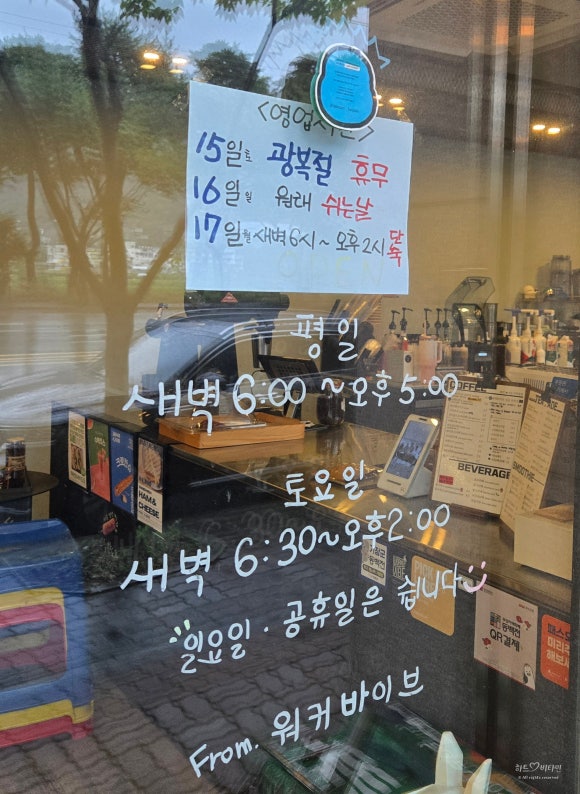 <영업시간>
15일 토 광복절 휴무
16일 일 원래 쉬는날
17일 월 새벽 6시~오후 2시 단축
평일
새벽 6:00~오후 5:00
토요일
새벽 6:30~오후 2:00
일요일·공휴일은 쉽니다
From. 워커바이브
COFFEE
BEVERAGE
SMOOTHIE
HAM &
CHEESE
동백전
QR결제
하트♡비타민
© All rights reserved